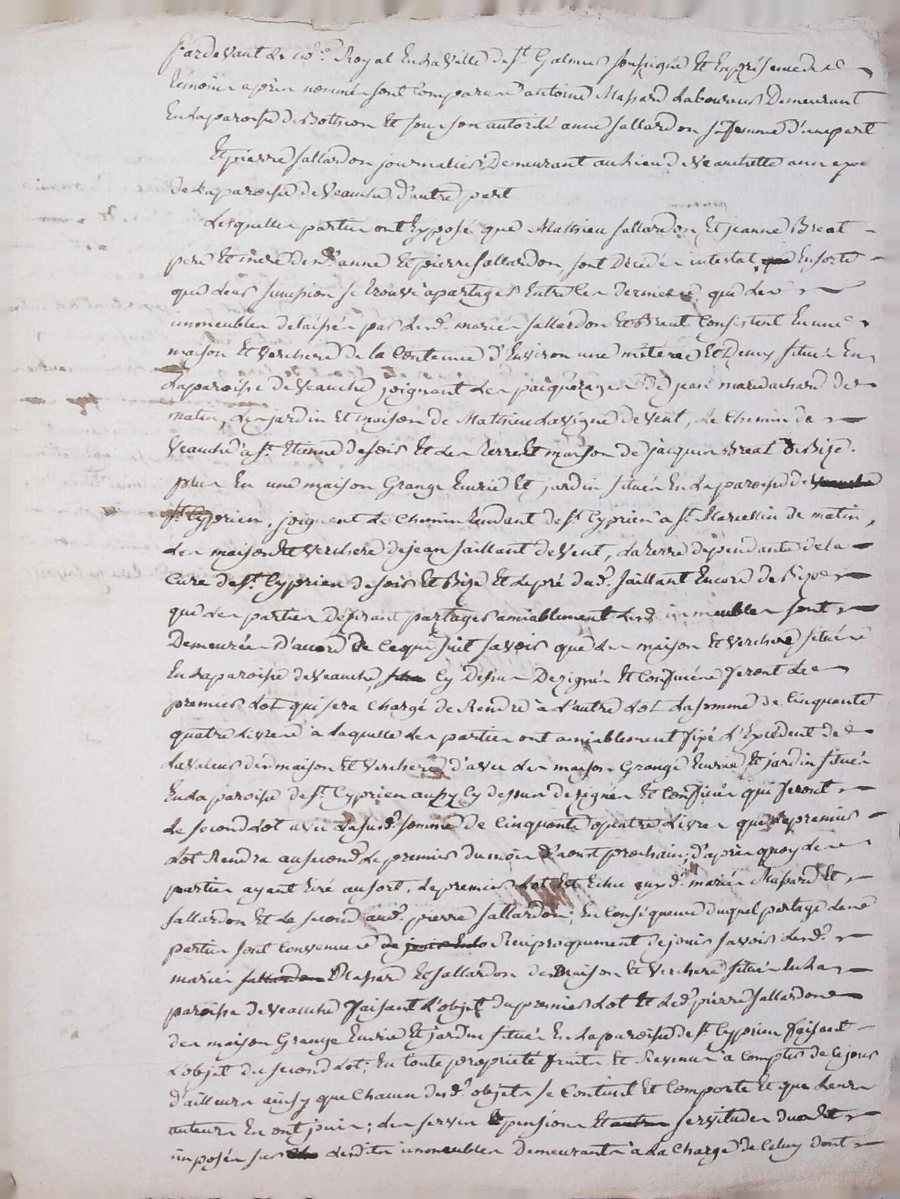 Pardevant Le no.re Royal En La Ville de St Galmier soussigné Et En présence des
témoins après nommés sont comparus antoine Massard Laboureur Demeurant
En La paroisse de Bothéon Et sous son autorité anne sallardon sa femme d'une part
Et pierre sallardon journalier Demeurant au Lieu de Veauchette annexe
de La paroisse de Veauche d'autre part
Lesquelles parties ont Exposé que Mathieu sallardon Et jeanne Breat
pere Et mere desd. anne Et pierre sallardon sont Décédés intestat Ensorte
que Leur succession se trouve a partager Entre Les derniers, que Les
immeubles delaissés par Lesd. mariés sallardon Et Breat Consistent En une
maison Et Verchere de la Contenue d'Environ une méterée Et Demy située En
La paroisse de Veauche joignant Les paquerages de jean de
matin, Les jardin Et maison de Mathieu Lavigne de Vent, Le Chemin de
Veauche a St Etienne de soir Et Les terre Et maison de jacques Breat de Bize.
plus En une maison Grange Ecurie Et jardin situés En La paroisse de
St Cyprien, joignent Le Chemin tendant de St Cyprien à St Marcellin de matin,
Les maison Et Verchere de jean saillant de Vent, La terre dépendante de la
Cure de St Cyprien de soir Et Bize Et Le pré dud. saillant Encore de Bize
que Les parties désirant partager amiablement Lesd. immeubles sont
Demeurées D'accord de Ce qui suit savoir que Les maison Et Verchere située
En La paroisse de Veauche Cy Dessus Dezignés Et Confinés seront Le
premier Lot qui sera Chargé de Rendre à L'autre Lot La somme de Cinquante
quatre Livres à Laquelle Les parties ont amiablement fixé L'Excédent de
La Valeur des maison Et Verchere d'avec Les maison Grange Ecurie Et jardin situés
En La paroisse de St Cyprien aussy Cy dessus dezignés Et Confinés qui seront
Le second Lot avec La susd. somme de Cinquante quatre Livres que Le premier
Lot Rendra au second Le premier du mois d'aout prochain; d'après quoy Les
parties ayant tiré au sort, Le premier Lot Est Echu auxd. mariés Massard Et
sallardon Et Le second aud. pierre sallardon; En Conséquence duquel partage Les
parties sont Convenues de Réciproquement de jouir savoir Lesd.
mariés Massard Et sallardon des Maison Et Verchere situés En La
paroisse de Veauche faisant L'objet du premier Lot Et Led. pierre sallardon
des maison Grange Ecurie Et jardin situés En La paroisse de St Cyprien faisant
L'objet du second Lot, En toute propriété fruits Et Revenus à Compter de Ce jour
d'ailleurs ainsy que Chacun desd. objets se Contient Et Comporte Et que Leurs
auteurs En ont joui; Les servis Et pensions Et servitudes
imposés sur Lesdits immeubles Demeurants à La Charge de Celuy dont